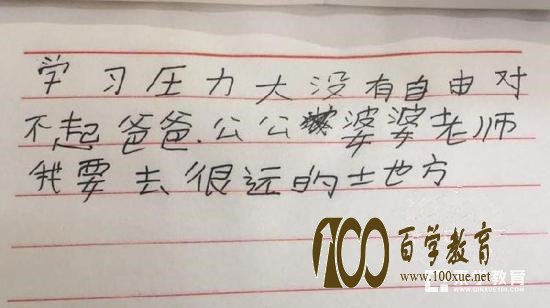 学习压力大没有自由对
不起爸爸.公公婆婆老师
我要去很远的土也方
100百学教育
www.100xue.net
教育
WWW.QINXUE100.COM